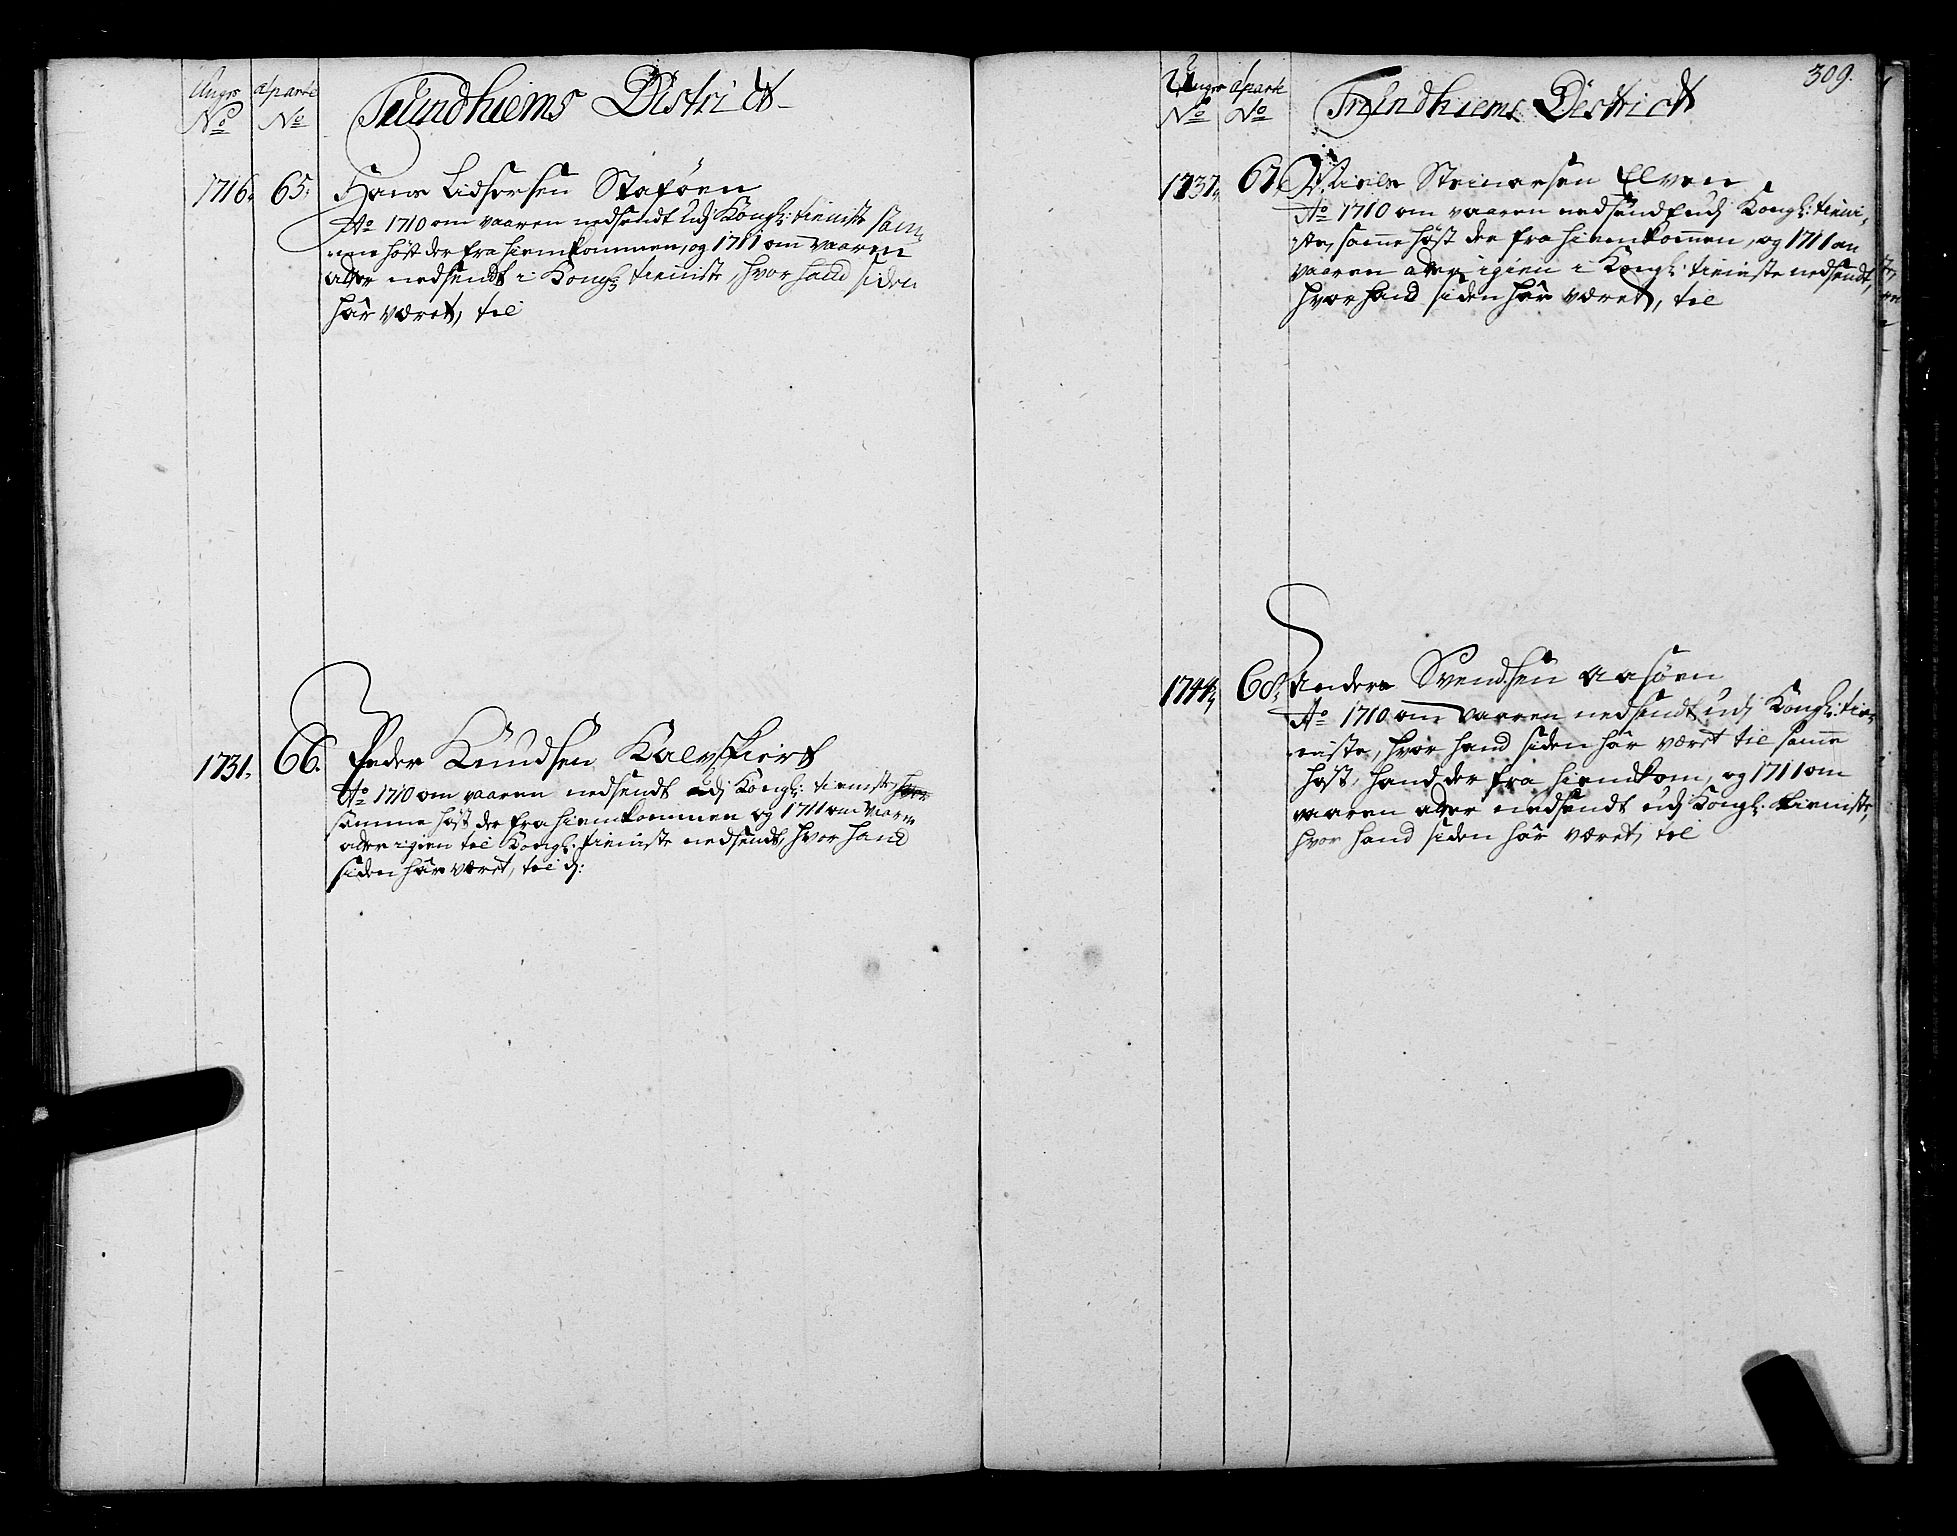 Ungrs aparte
No No
Trundhiems District
1716. 65. Hans Lidsersen Staføen
Ao 1710 om vaaren nedsendt udj Kongl: tieniste sam=
me høst der fra hiemkommen, og 1711 om vaaren
atter nedsendt i Kongl: tieniste hvor hand siden
har været, til
1731. 66. Peder Knudsen Kalfskiert
Ao 1710 om vaaren nedsendt udj Kongl: tieniste,
samme høst der fra hiemkommen og 1711 om vaaren
atter igien til Kongl: tieniste nedsendt, hvor hand
siden har været, til d:
309.
Ungrs aparte
No No
Trundhiems District
1737. 67. Niels Steinersen Elven
Ao 1710 om vaaren nedsendt udj Kongl: tieni=
ste, samme høst der fra hiemkommen, og 1711 om
vaaren atter igien i Kongl: tieniste nedsendt,
hvor hand siden har været, til
1744. 68. Anders Svendsen Aasøen
Ao 1710 om vaaren nedsendt udj Kongl: tie=
niste, hvor hand siden har været til samme
høst, hand der fra hiemkom, og 1711 om
vaaren atter nedsendt udj Kongl: tieniste,
hvor hand siden har været, til